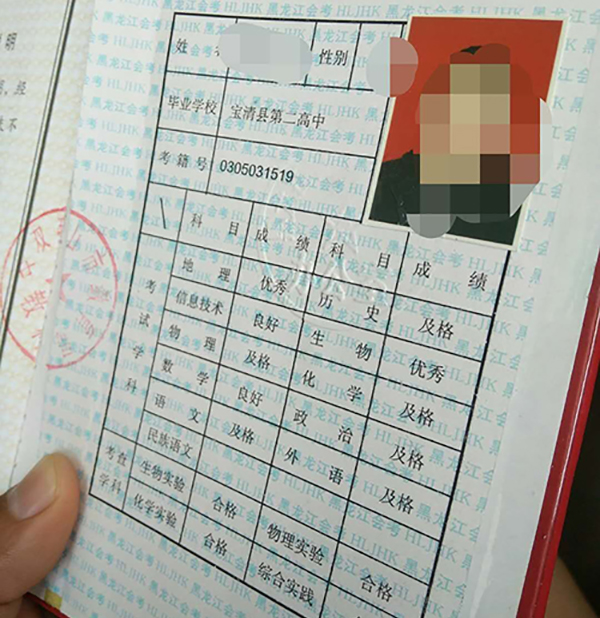 姓 性别
毕业学校 宝清县第二高中
考籍号 0305031519
科目 成绩 科目 成绩
考试学科
地理 优秀 历史 及格
信息技术 良好 生物 优秀
物理 及格 化学 及格
数学 良好 政治 及格
语文 及格 外语 及格
民族语文
考查学科
生物实验 合格 物理实验 合格
化学实验 合格 综合实践
黑龙江会考 HLJHK
明
经
不